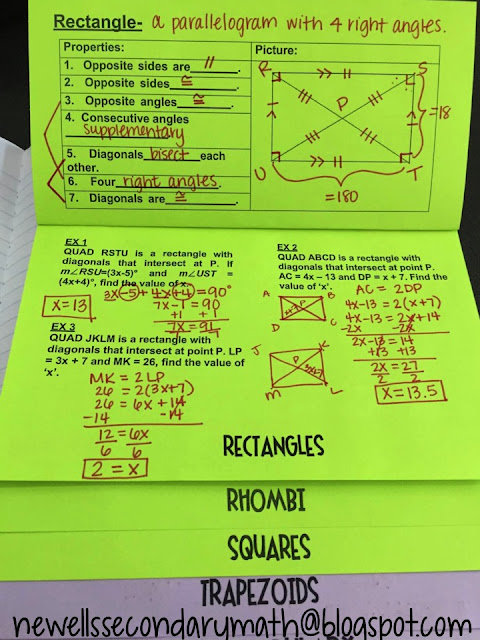 Rectangle- a parallelogram with 4 right angles.
Properties:
1. Opposite sides are //.
2. Opposite sides ≅.
3. Opposite angles ≅.
4. Consecutive angles
supplementary
5. Diagonals bisect each
other.
6. Four right angles.
7. Diagonals are ≅.
Picture:
R S
P
U T
=18
=180
EX 1
QUAD RSTU is a rectangle with
diagonals that intersect at P. If
m∠RSU=(3x-5)° and m∠UST =
(4x+4)°, find the value of x.
3x(-5)+ 4x(+4)=90°
7x-1=90
+1 +1
7x=91
x=13
EX 2
QUAD ABCD is a rectangle with
diagonals that intersect at point P.
AC = 4x – 13 and DP = x + 7. Find the
value of 'x'.
A B
P
D C
AC = 2DP
4x-13 = 2(x+7)
4x-13 = 2x+14
-2x -2x
2x-13 = 14
+13 +13
2x = 27
2 2
x=13.5
EX 3
QUAD JKLM is a rectangle with
diagonals that intersect at point P. LP
= 3x + 7 and MK = 26, find the value of
'x'.
J K
P
3x+7
M L
MK = 2LP
26 = 2(3x+7)
26 = 6x + 14
-14 -14
12 = 6x
6 6
2 = x
RECTANGLES
RHOMBI
SQUARES
TRAPEZOIDS
newellssecondarymath@blogspot.com